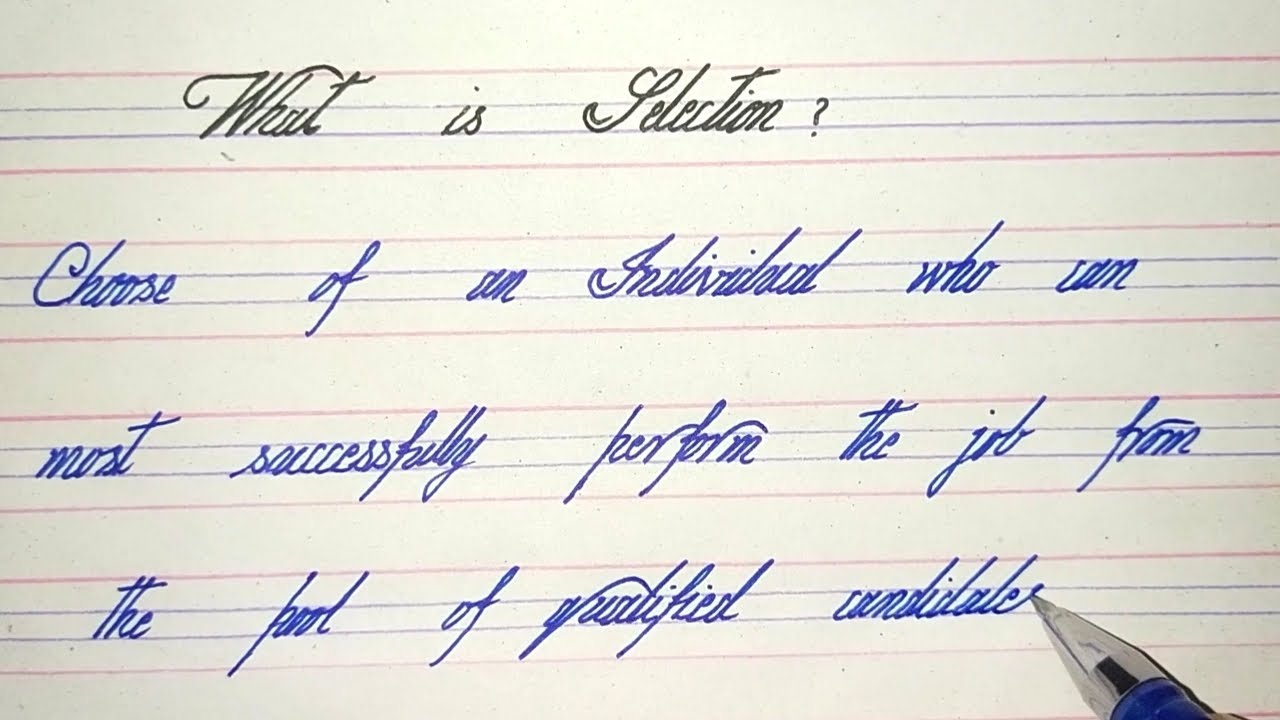 What is Selection?
Choose of an Individual who can
most successfully perform the job from
the pool of qualified candidates